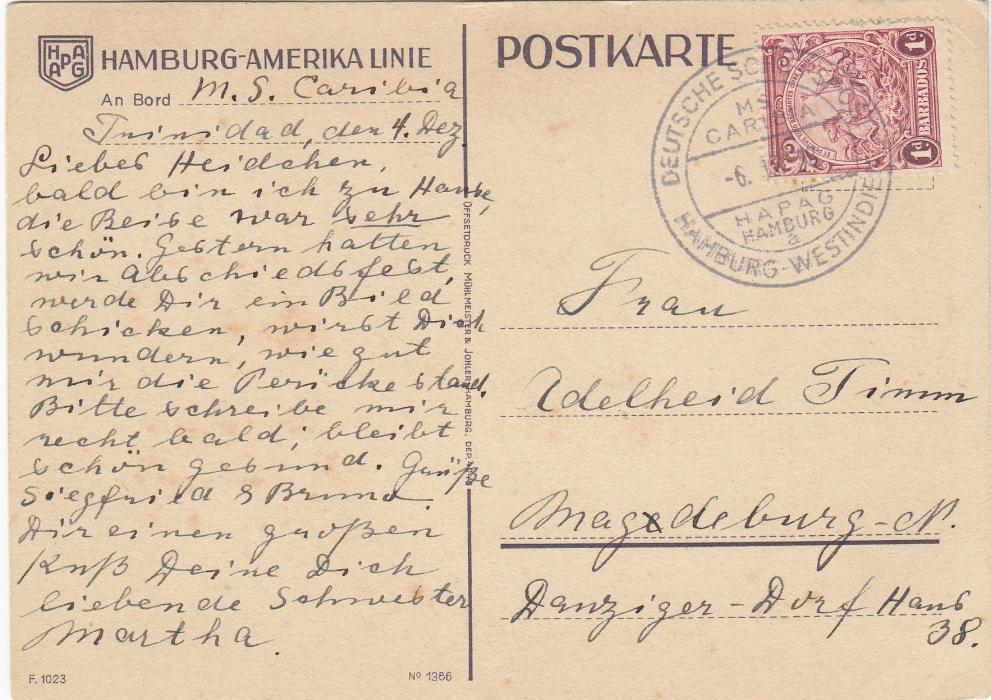 HAPAG
HAMBURG-AMERIKA LINIE
An Bord M. S. Caribia
Trinidad, den 4. Dez.
Liebes Heidchen,
bald bin ich zu Hause,
die Reise war sehr
schön. Gestern hatten
wir Abschiedsfest,
werde Dir ein Bild
schicken, wirst Dich
wundern, wie gut
mir die Perücke stand.
Bitte schreibe mir
recht bald; bleibt
schön gesund. Grüße
Siegfried & Bruno.
Dir einen großen
Kuß Deine Dich
liebende Schwester
Martha.
F. 1023
Nº 1366
OFFSETDRUCK MÜHLMEISTER & JOHLER, HAMBURG.
POSTKARTE
BARBADOS
1d
1d
DEUTSCHE
MS
HAPAG
HAMBURG
a
HAMBURG-WESTINDIEN
-6.
Frau
Adelheid Timm
Magdeburg-N.
Danziger-Dorf Haus
38.